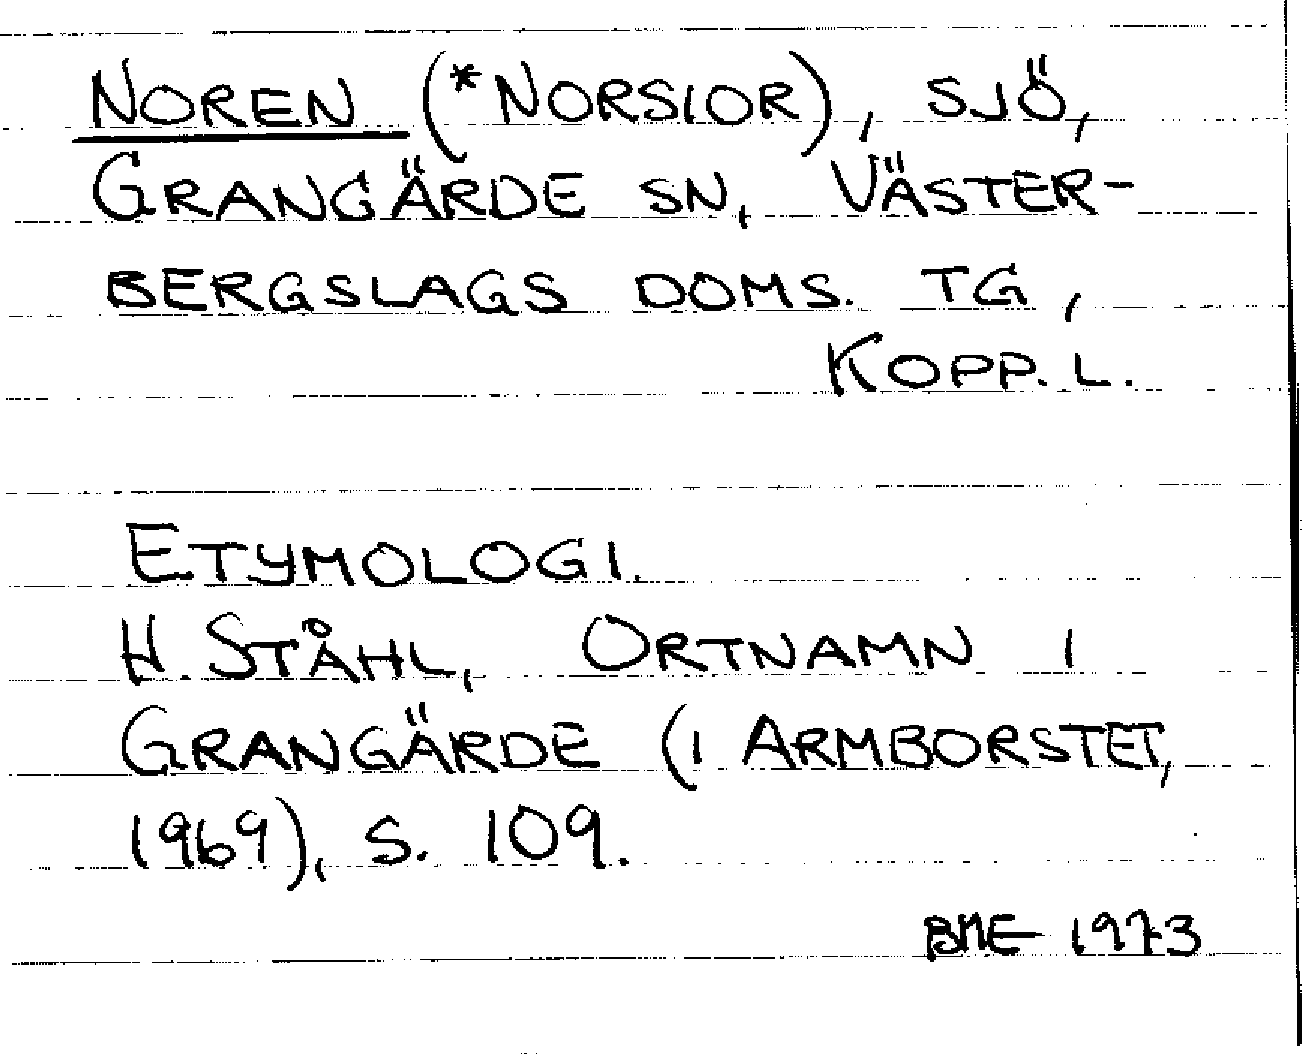 NOREN (*NORSIOR), SJÖ,
GRANGÄRDE SN, VÄSTER-
BERGSLAGS DOMS. TG,
KOPP. L.
ETYMOLOGI.
H. STÅHL, ORTNAMN I
GRANGÄRDE (I ARMBORSTET,
1969), S. 109.
BME 1973